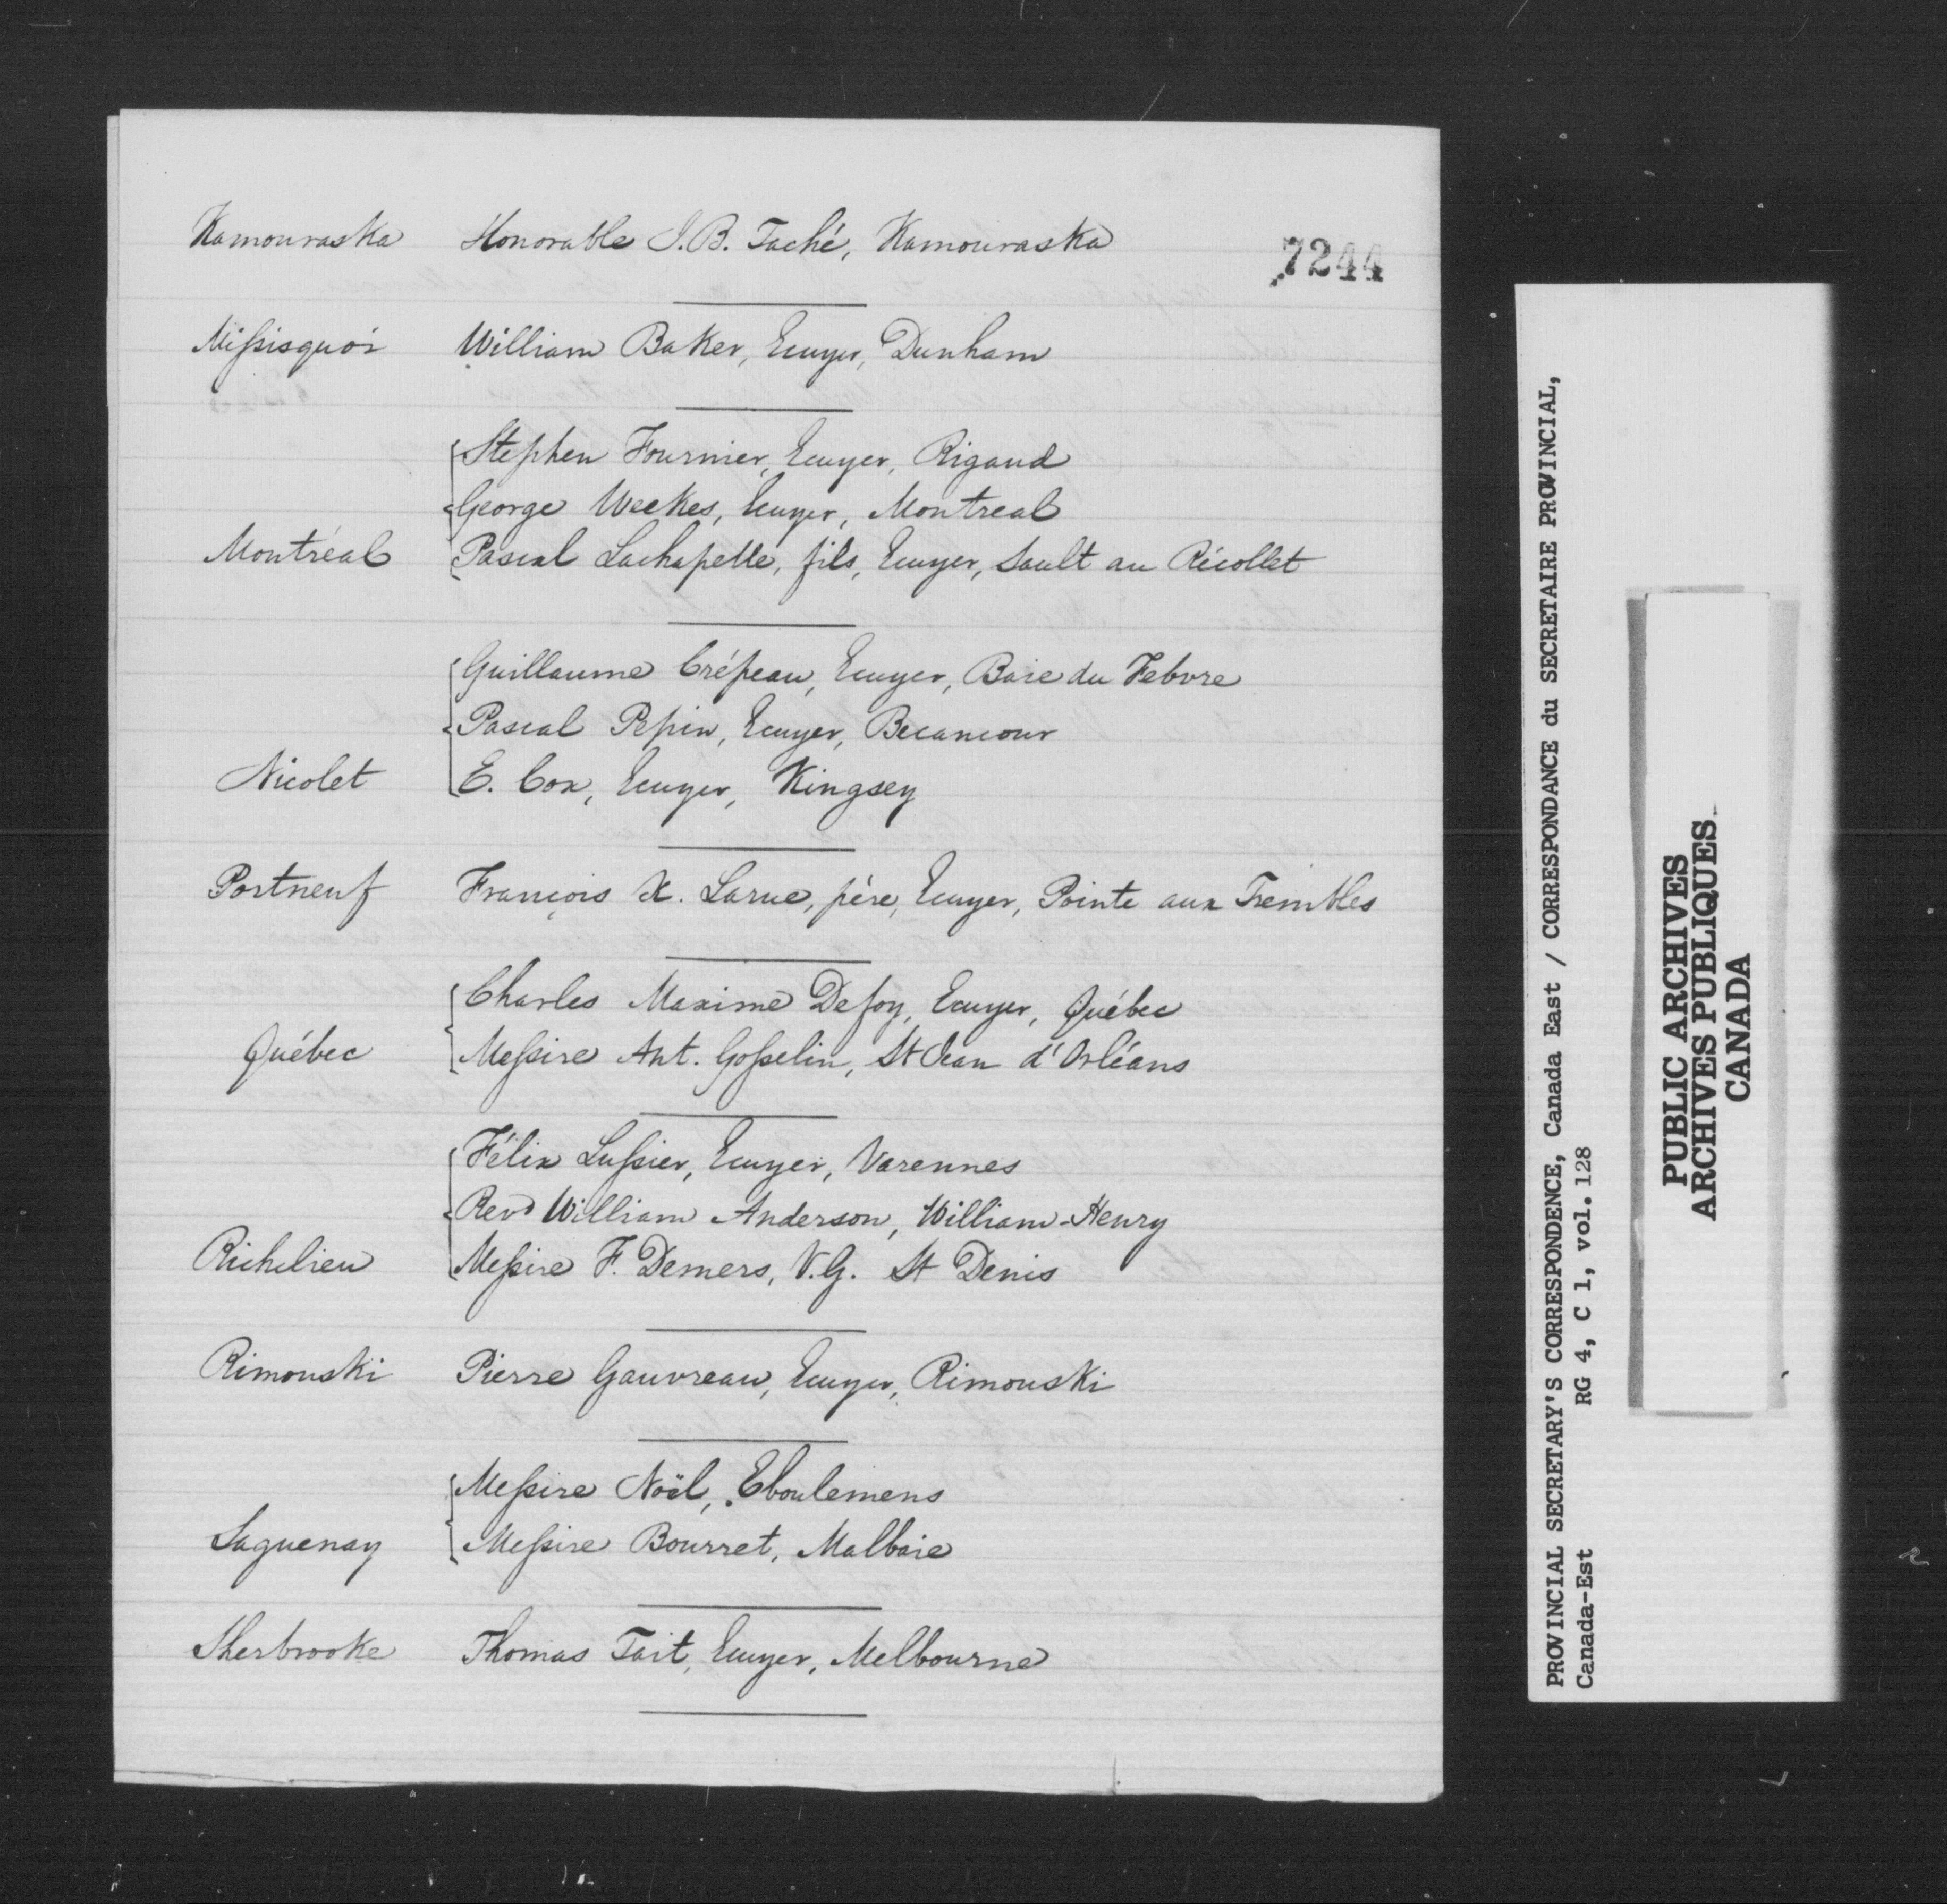 Kamouraska Honorable J. B. Taché, Kamouraska
7244
Missisquoi William Baker, Ecuyer, Dunham
Stephen Fournier, Ecuyer, Rigaud
George Weekes, Ecuyer, Montreal
Montréal Pascal Lachapelle, fils, Ecuyer, Sault au Récollet
Guillaume Crépeau, Ecuyer, Baie du Febvre
Pascal Pepin, Ecuyer, Becancour
Nicolet E. Cox, Ecuyer, Kingsey
Portneuf François X. Larue, père, Ecuyer, Pointe aux Trembles
Charles Maxime Defoy, Ecuyer, Québec
Québec Messire Ant. Gosselin, St Jean d'Orléans
Félix Lussier, Ecuyer, Varennes
Revd William Anderson, William-Henry
Richelieu Messire F. Demers, V.G. St Denis
Rimouski Pierre Gauvreau, Ecuyer, Rimouski
Messire Noël, Eboulemens
Saguenay Messire Bourret, Malbaie
Sherbrooke Thomas Tait, Ecuyer, Melbourne
PROVINCIAL SECRETARY'S CORRESPONDENCE, Canada East / CORRESPONDANCE du SECRETAIRE PROVINCIAL,
Canada-Est RG 4, C 1, vol. 128
PUBLIC ARCHIVES
ARCHIVES PUBLIQUES
CANADA